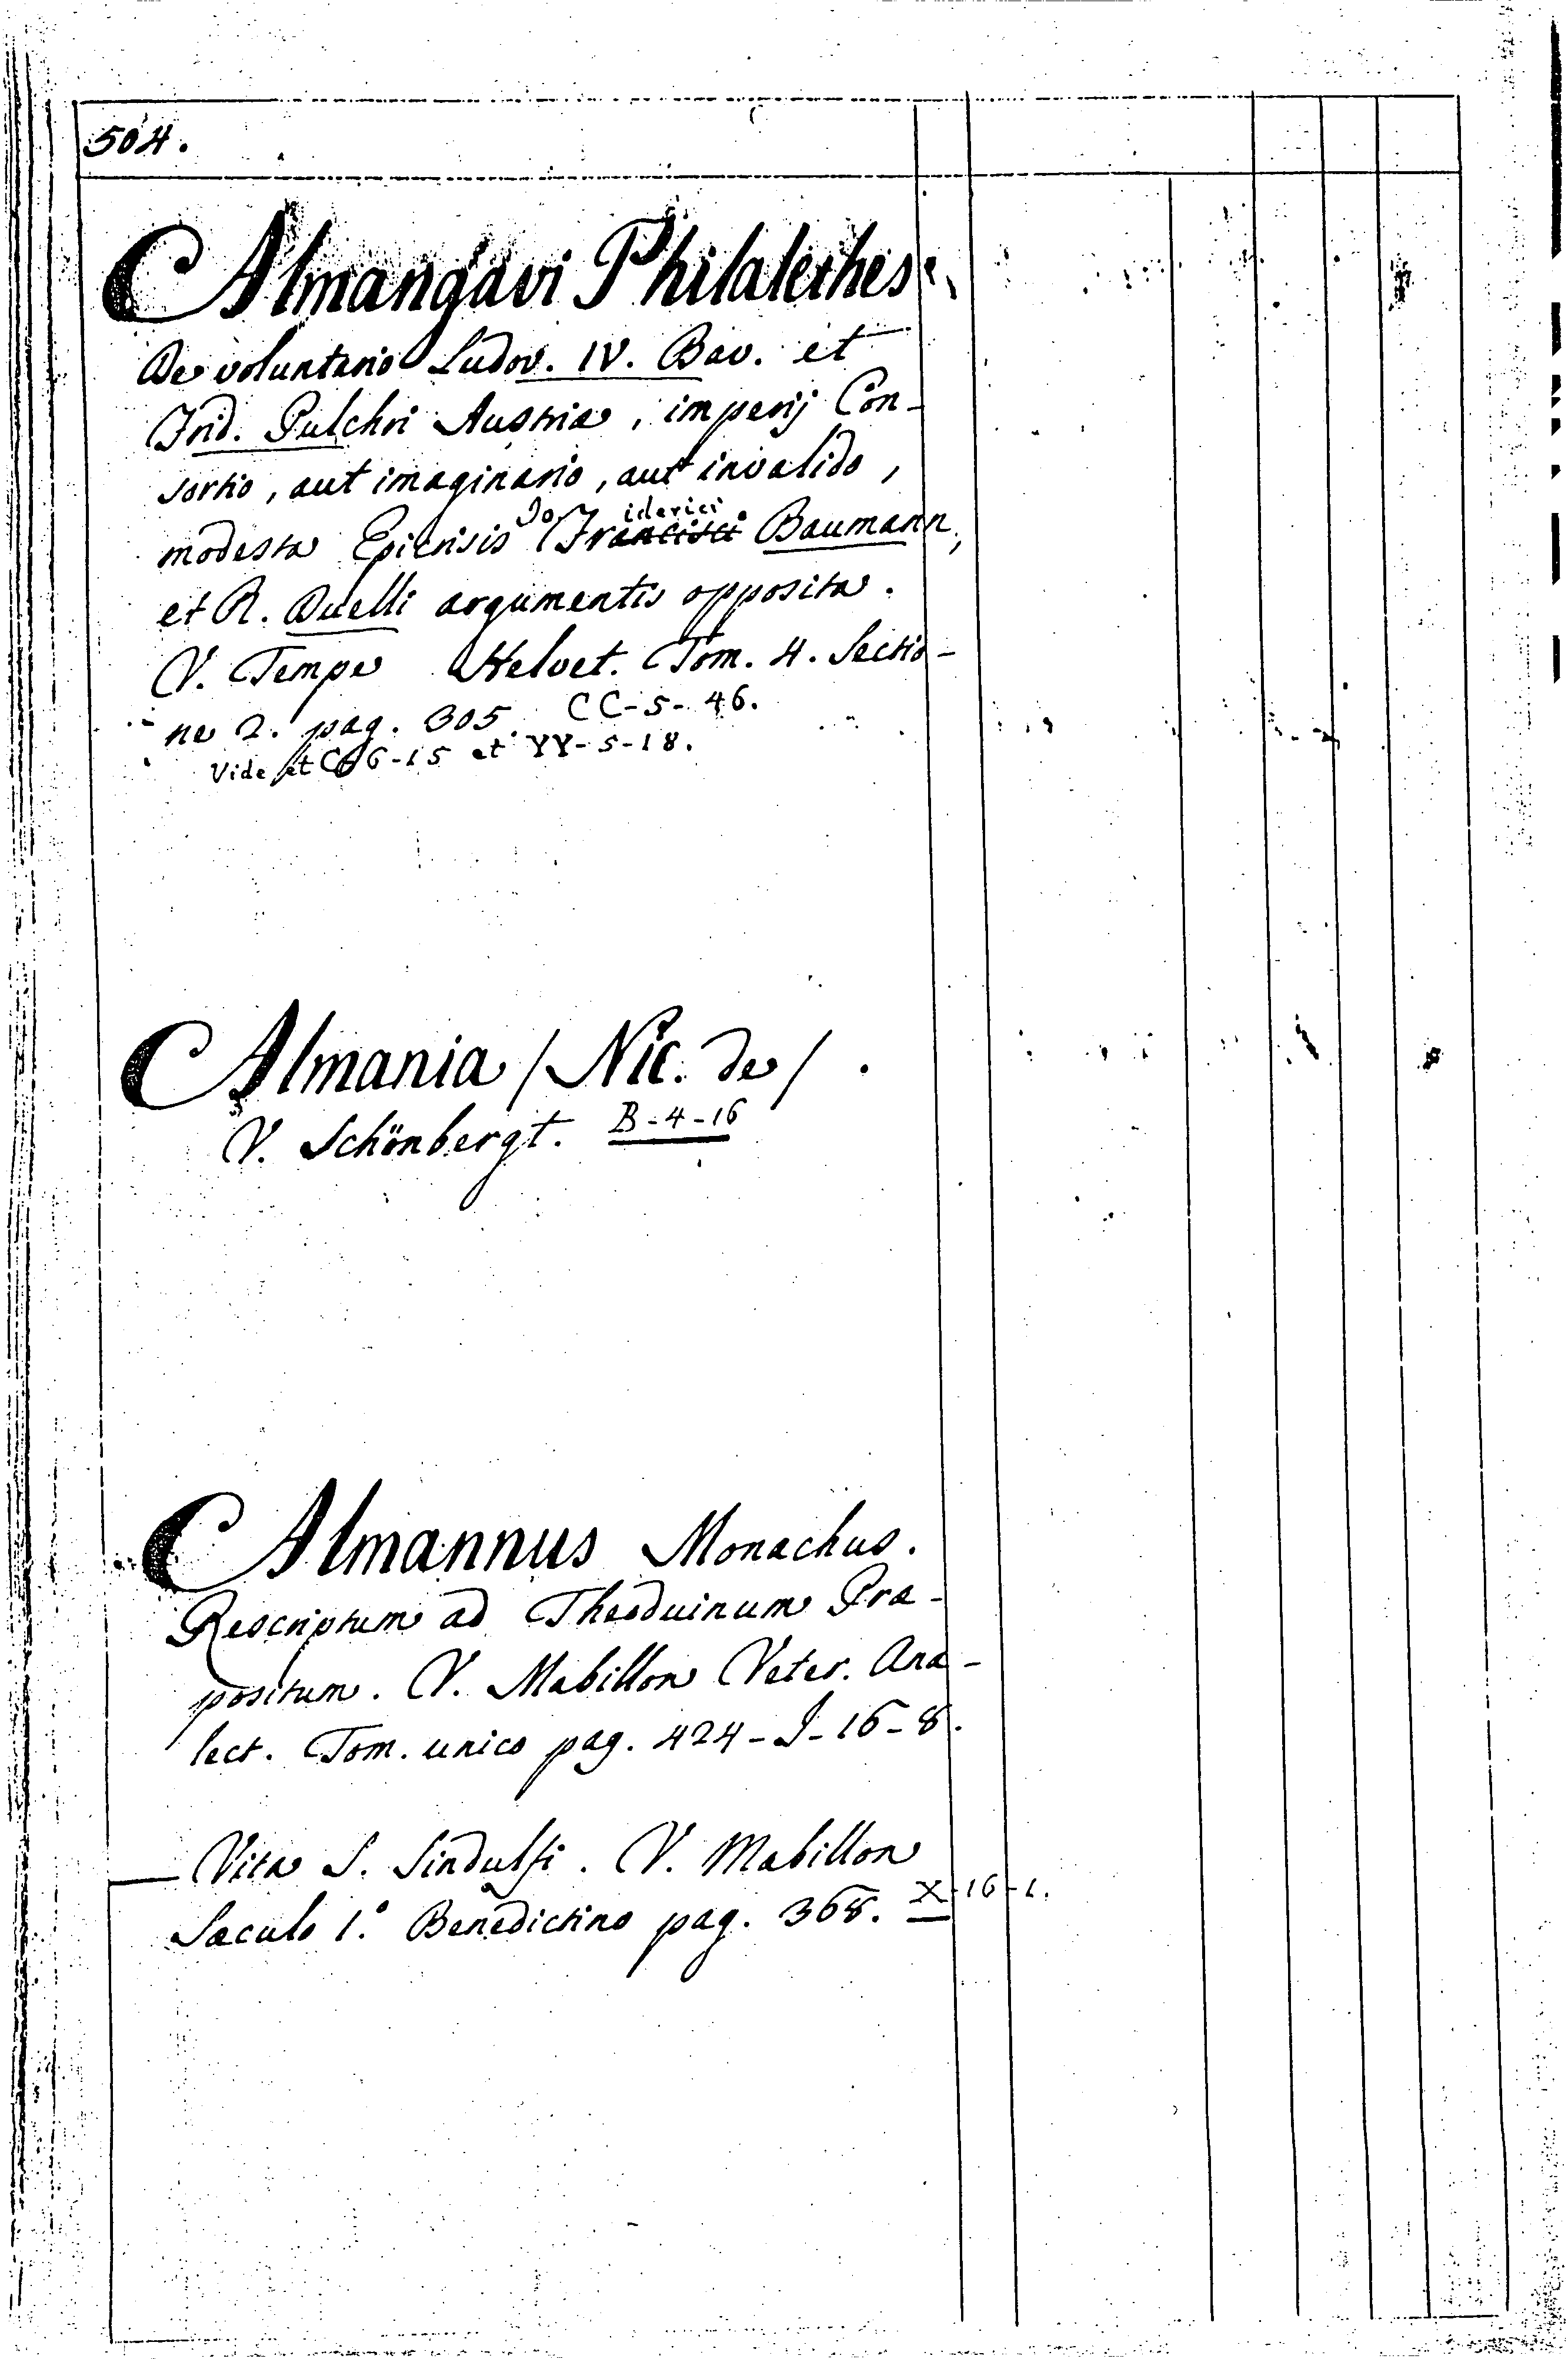 504.
Almangavi Philalethes
De voluntario Ludov. IV. Bav. et
Frid. Pulchri Austriæ, imperij Con-
sortio, aut imaginario, aut invalido,
modesta Epicrisis Jo. Friderici Baumann,
et R. Duelli argumentis opposita.
V. Tempe Helvet. Tom. 4. Sectio-
ne 2. pag. 305. CC-5-46.
Vide et 6-15 et YY-5-18.
Almania /Nic. de/.
V. Schönbergt. B-4-16
Almannus Monachus.
Rescriptum ad Theoduinum Præ-
positum. V. Mabillon Veter. Ana-
lect. Tom. unico pag. 424-I-16-8.
— Vita S. Sindulfi. V. Mabillon
Sæculo 1.° Benedictino pag. 368. X-16-1.